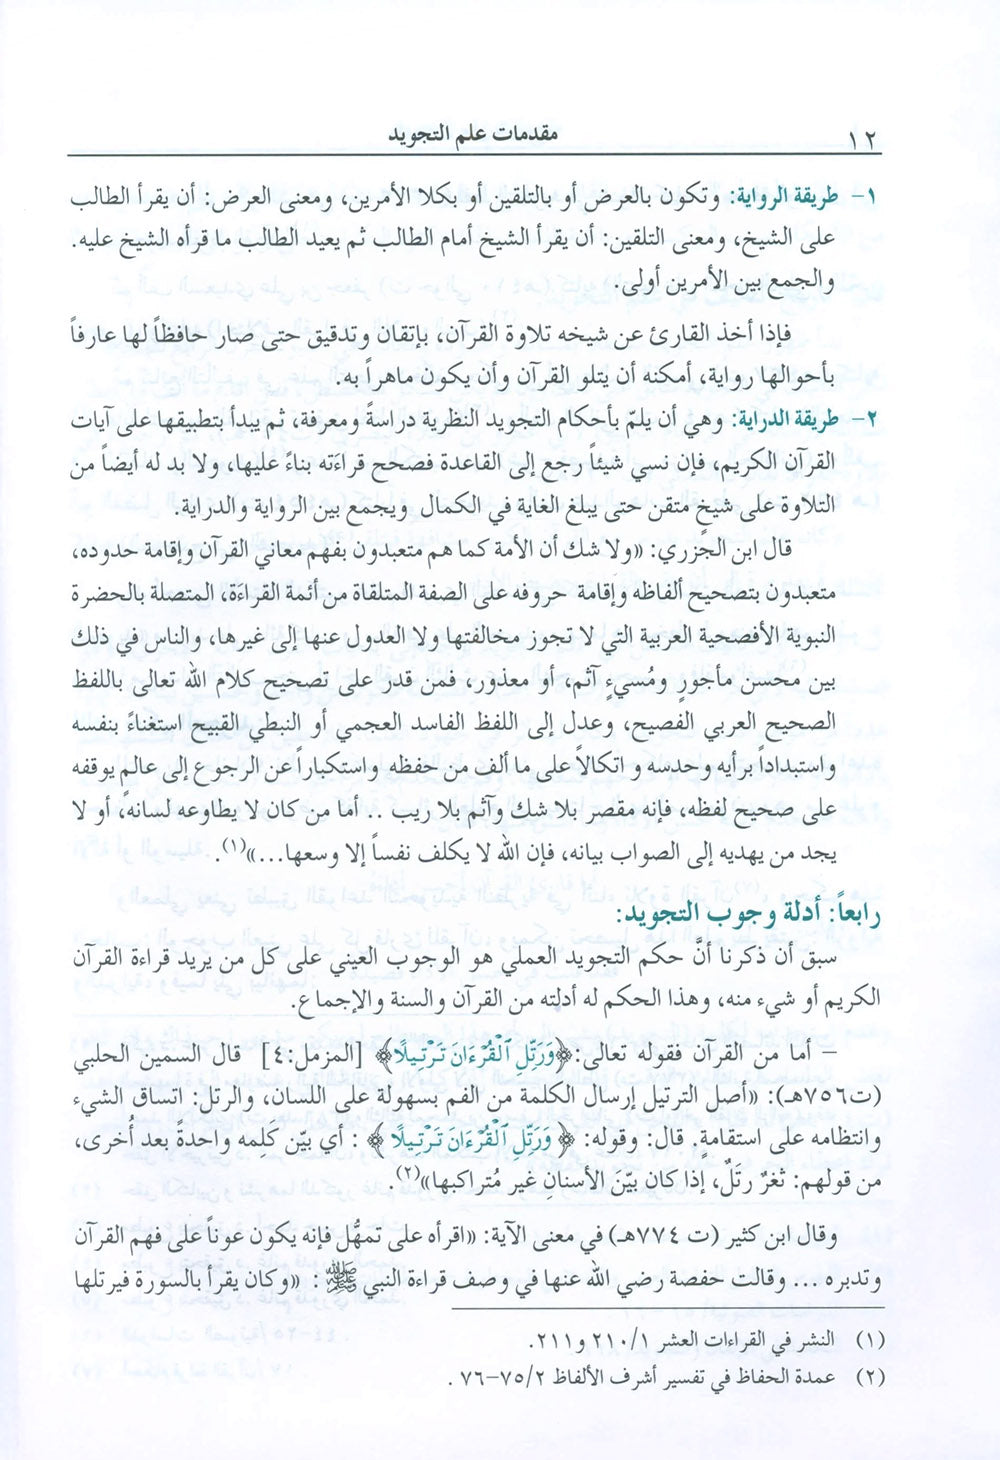 ١٢ مقدمات علم التجويد
١- طريقة الرواية: وتكون بالعرض أو بالتلقين أو بكلا الأمرين، ومعنى العرض: أن يقرأ الطالب
على الشيخ، ومعنى التلقين: أن يقرأ الشيخ أمام الطالب ثم يعيد الطالب ما قرأه الشيخ عليه.
والجمع بين الأمرين أولى.
فإذا أخذ القارئ عن شيخه تلاوة القرآن، بإتقان وتدقيق حتى صار حافظاً لها عارفاً
بأحوالها رواية، أمكنه أن يتلو القرآن وأن يكون ماهراً به.
٢- طريقة الدراية: وهي أن يلمّ بأحكام التجويد النظرية دراسةً ومعرفة، ثم يبدأ بتطبيقها على آيات
القرآن الكريم، فإن نسي شيئاً رجع إلى القاعدة فصحح قراءته بناءً عليها، ولا بد له أيضاً من
التلاوة على شيخ متقن حتى يبلغ الغاية في الكمال ويجمع بين الرواية والدراية.
قال ابن الجَزَري: «ولا شك أن الأمة كما هم متعبدون بفهم معاني القرآن وإقامة حدوده،
متعبدون بتصحيح ألفاظه وإقامة حروفه على الصفة المتلقاة من أئمة القراءَة، المتصلة بالحضرة
النبوية الأفصحية العربية التي لا تجوز مخالفتها ولا العدول عنها إلى غيرها، والناس في ذلك
بين محسن مأجورٍ ومُسيءٍ آثم، أو معذور، فمن قدر على تصحيح كلام الله تعالى باللفظ
الصحيح العربي الفصيح، وعدل إلى اللفظ الفاسد العجمي أو النبطي القبيح استغناءً بنفسه
واستبداداً برأيه وحدسه و اتكالاً على ما ألف من حفظه واستكباراً عن الرجوع إلى عالمٍ يوقفه
على صحيح لفظه، فإنه مقصر بلا شك وآثم بلا ريب .. أما من كان لا يطاوعه لسانه، أو لا
يجد من يهديه إلى الصواب بيانه، فإن الله لا يكلف نفساً إلا وسعها...»(١).
رابعاً: أدلة وجوب التجويد:
سبق أن ذكرنا أنَّ حكم التجويد العملي هو الوجوب العيني على كل من يريد قراءة القرآن
الكريم أو شيء منه، وهذا الحكم له أدلته من القرآن والسنة والإجماع.
– أما من القرآن فقوله تعالى: ﴿وَرَتِّلِ ٱلْقُرْءَانَ تَرْتِيلًا﴾ [المزمل:٤] قال السمين الحلبي
(ت٧٥٦هـ): «أصل الترتيل إرسال الكلمة من الفم بسهولة على اللسان، والرتل: اتساق الشيء
وانتظامه على استقامةٍ. قال: وقوله: ﴿ وَرَتِّلِ ٱلْقُرْءَانَ تَرْتِيلًا ﴾ : أي بيّن كَلِمه واحدةً بعد أُخرى،
من قولهم: ثغرٌ رتَلٌ، إذا كان بيّنَ الأسنانِ غير مُتراكبها»(٢).
وقال ابن كثير (ت ٧٧٤هـ) في معنى الآية: «اقرأه على تمهُّل فإنه يكون عوناً على فهم القرآن
وتدبره ... وقالت حفصة رضي الله عنها في وصف قراءة النبي ﷺ : «وكان يقرأ بالسورة فيرتلها
(١) النشر في القراءات العشر ٢١٠/١ و٢١١.
(٢) عمدة الحفاظ في تفسير أشرف الألفاظ ٧٥/٢-٧٦ .